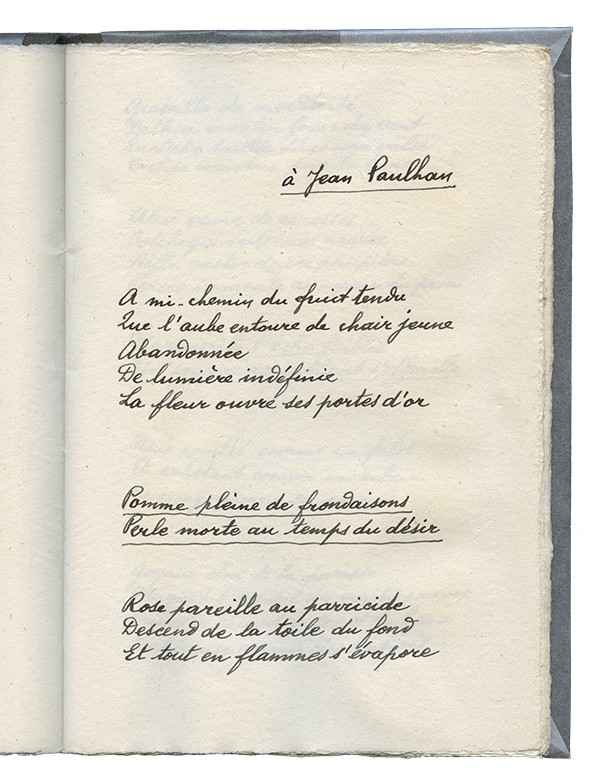 à Jean Paulhan
A mi-chemin du fruit tendu
Que l'aube entoure de chair jeune
Abandonnée
De lumière indéfinie
La fleur ouvre ses portes d'or
Pomme pleine de frondaisons
Perle morte au temps du désir
Rose pareille au parricide
Descend de la toile du fond
Et tout en flammes s'évapore